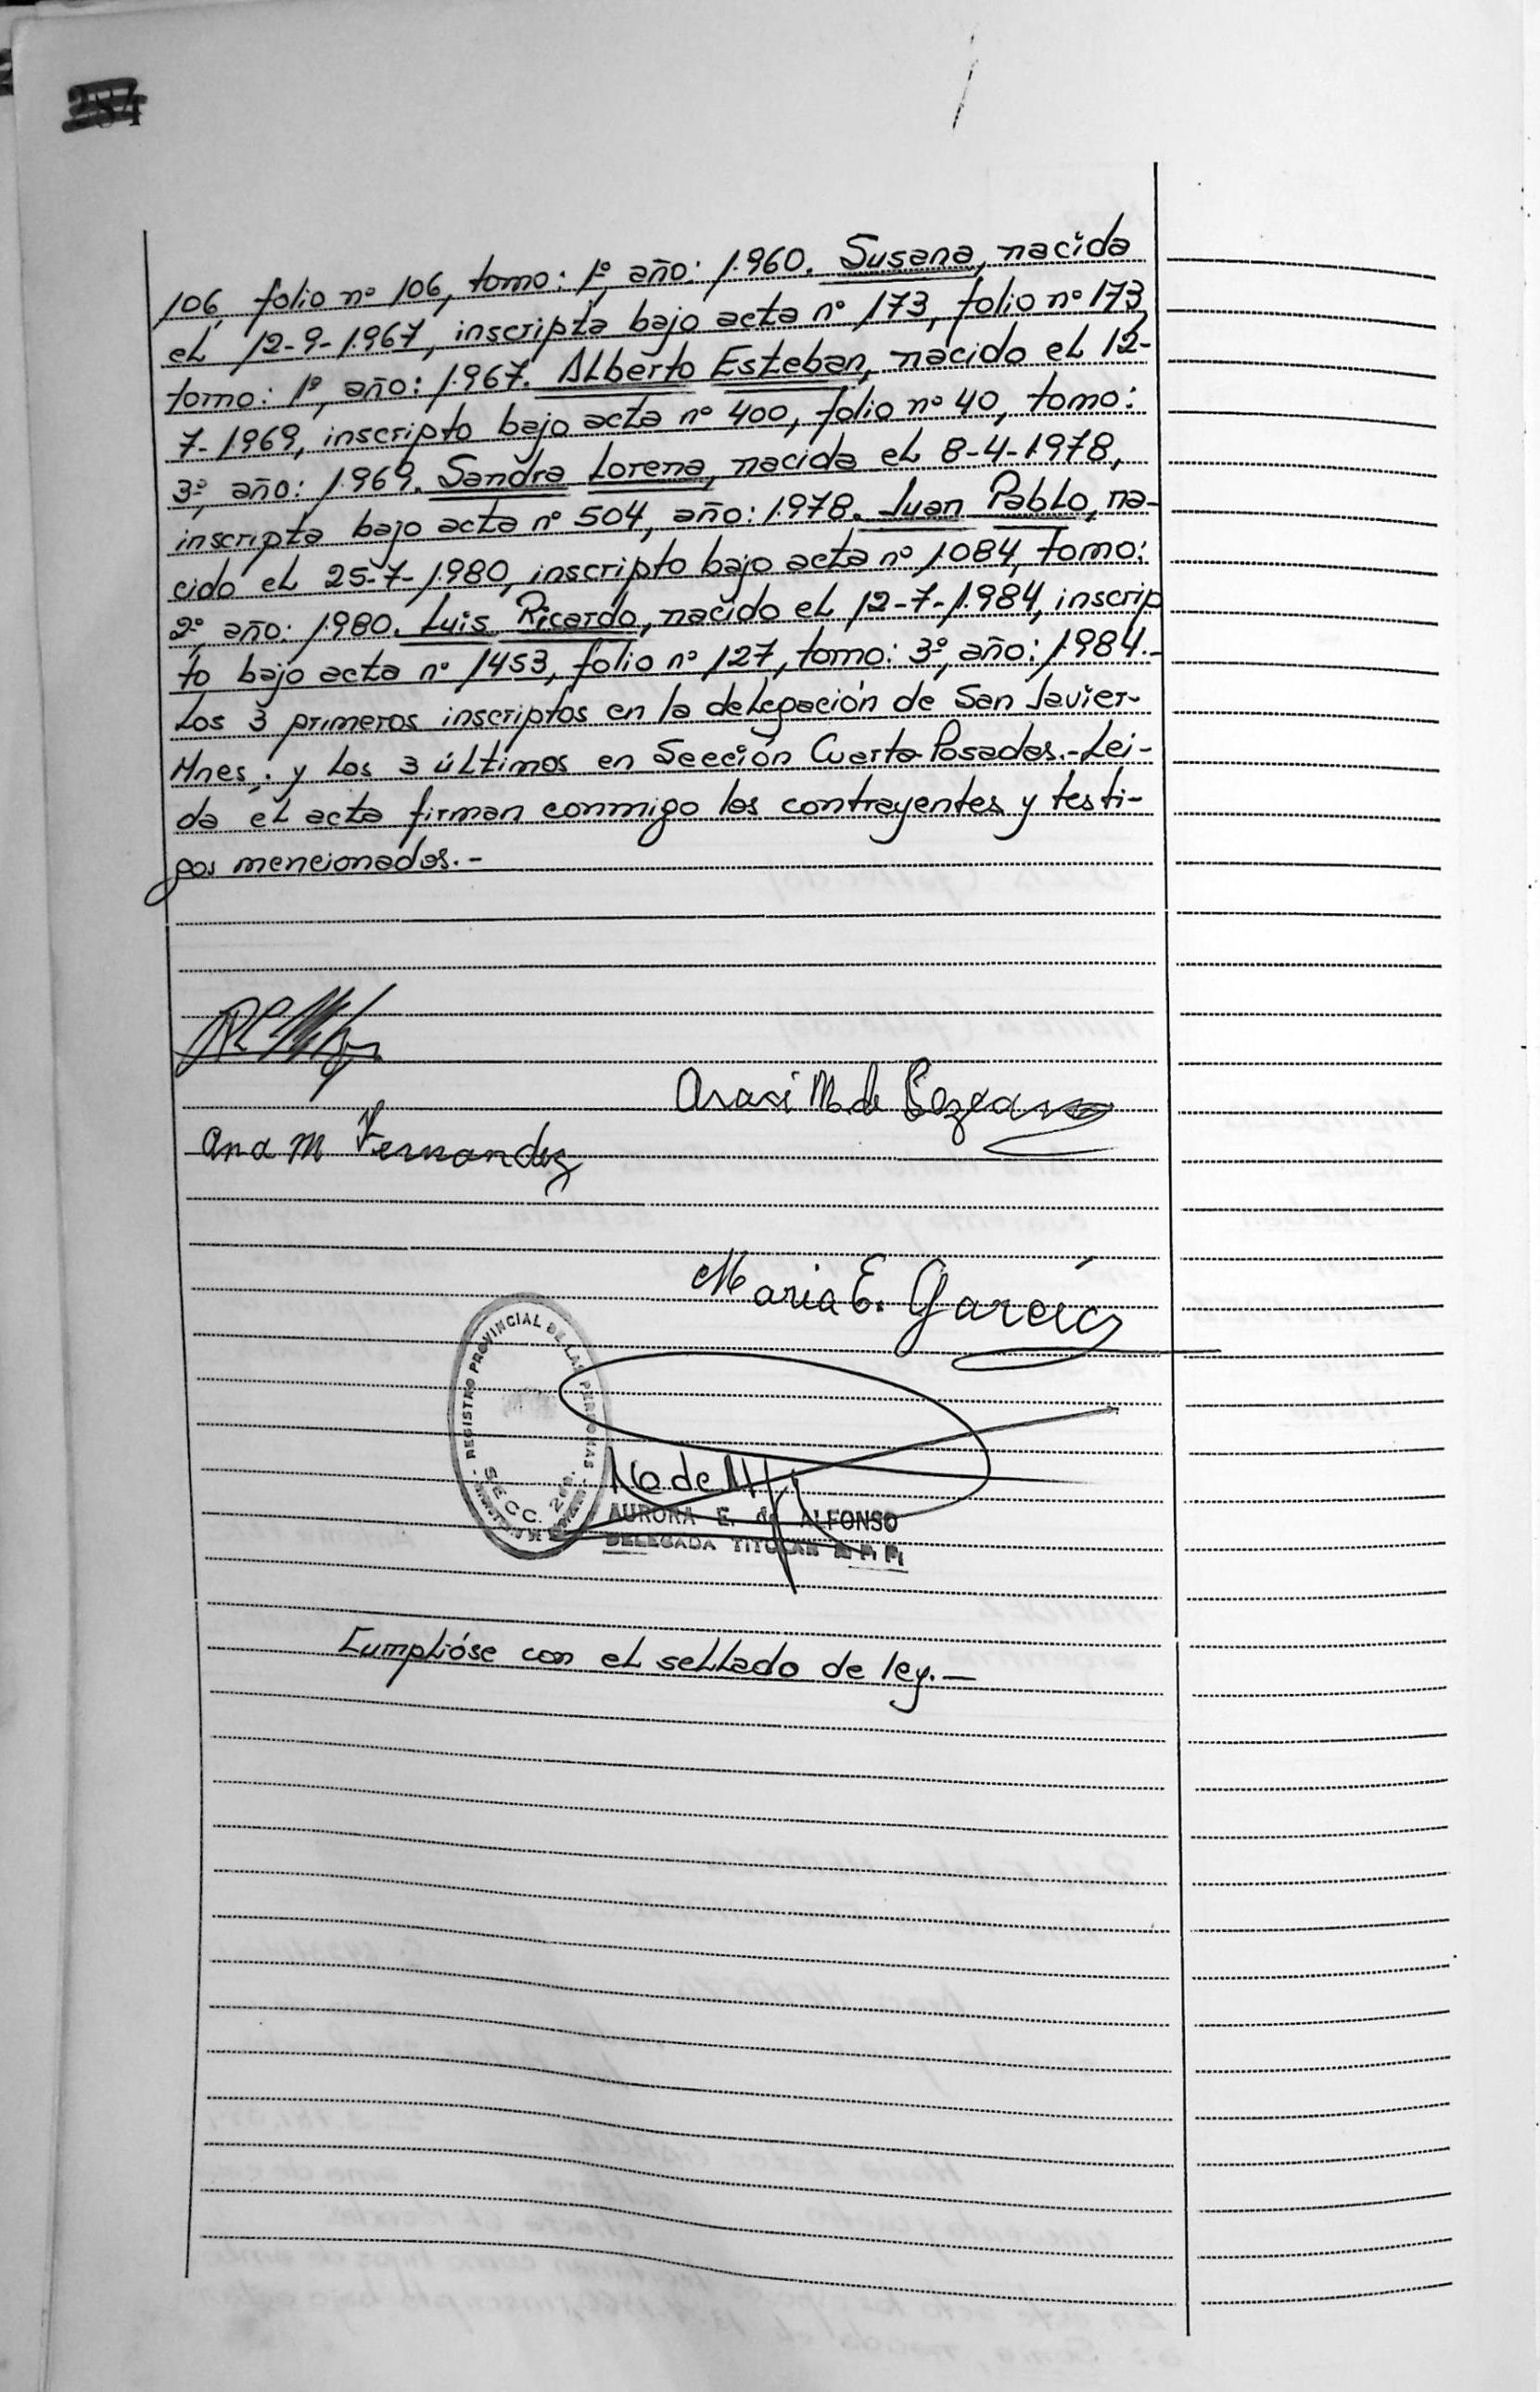 284
106, folio nº 106, tomo: 1º, año: 1.960. Susana, nacida
el 12-9-1.967, inscripta bajo acta nº 173, folio nº 173
tomo: 1º, año: 1.967. Alberto Esteban, nacido el 12-
7-1.969, inscripto bajo acta nº 400, folio nº 40, tomo:
3º, año: 1.969. Sandra Lorena, nacida el 8-4-1.978,
inscripta bajo acta nº 504, año: 1.978. Juan Pablo, na-
cido el 25-7-1.980, inscripto bajo acta nº 1.084, tomo:
2º, año: 1.980. Luis Ricardo, nacido el 12-7-1.984, inscrip
to bajo acta nº 1453, folio nº 127, tomo: 3º, año: 1.984.-
Los 3 primeros inscriptos en la delegación de San Javier-
Mnes. y los 3 últimos en Sección Cuarta-Posadas.- Lei-
da el acta firman conmigo los contrayentes y testi-
gos mencionados.-
Arasi M. de
Ana M Fernandez
Maria E. García
REGISTRO PROVINCIAL DE LAS PERSONAS
SECC. 2da.
AURORA E. de ALFONSO
DELEGADA TITULAR R. P. P.
Cumplióse con el sellado de ley.-